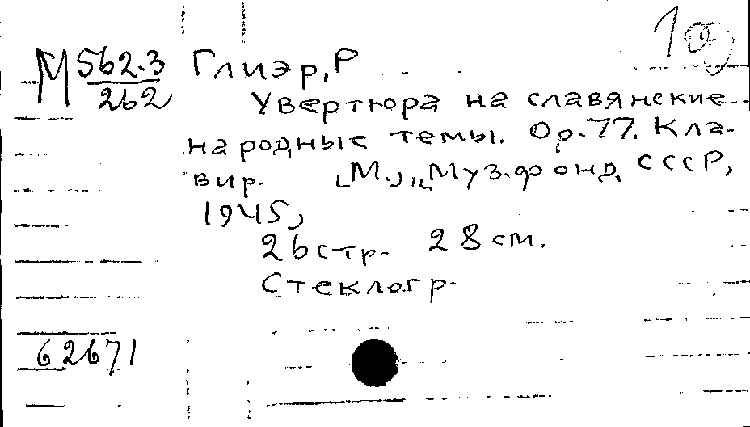 10
М 562.3 Глиэр, Р
262
Увертюра на славянские
народные темы. Op. 77. Кла-
вир. [М.], Муз. фонд СССР,
1945,
26 стр. 28 см.
Стеклогр.
62671